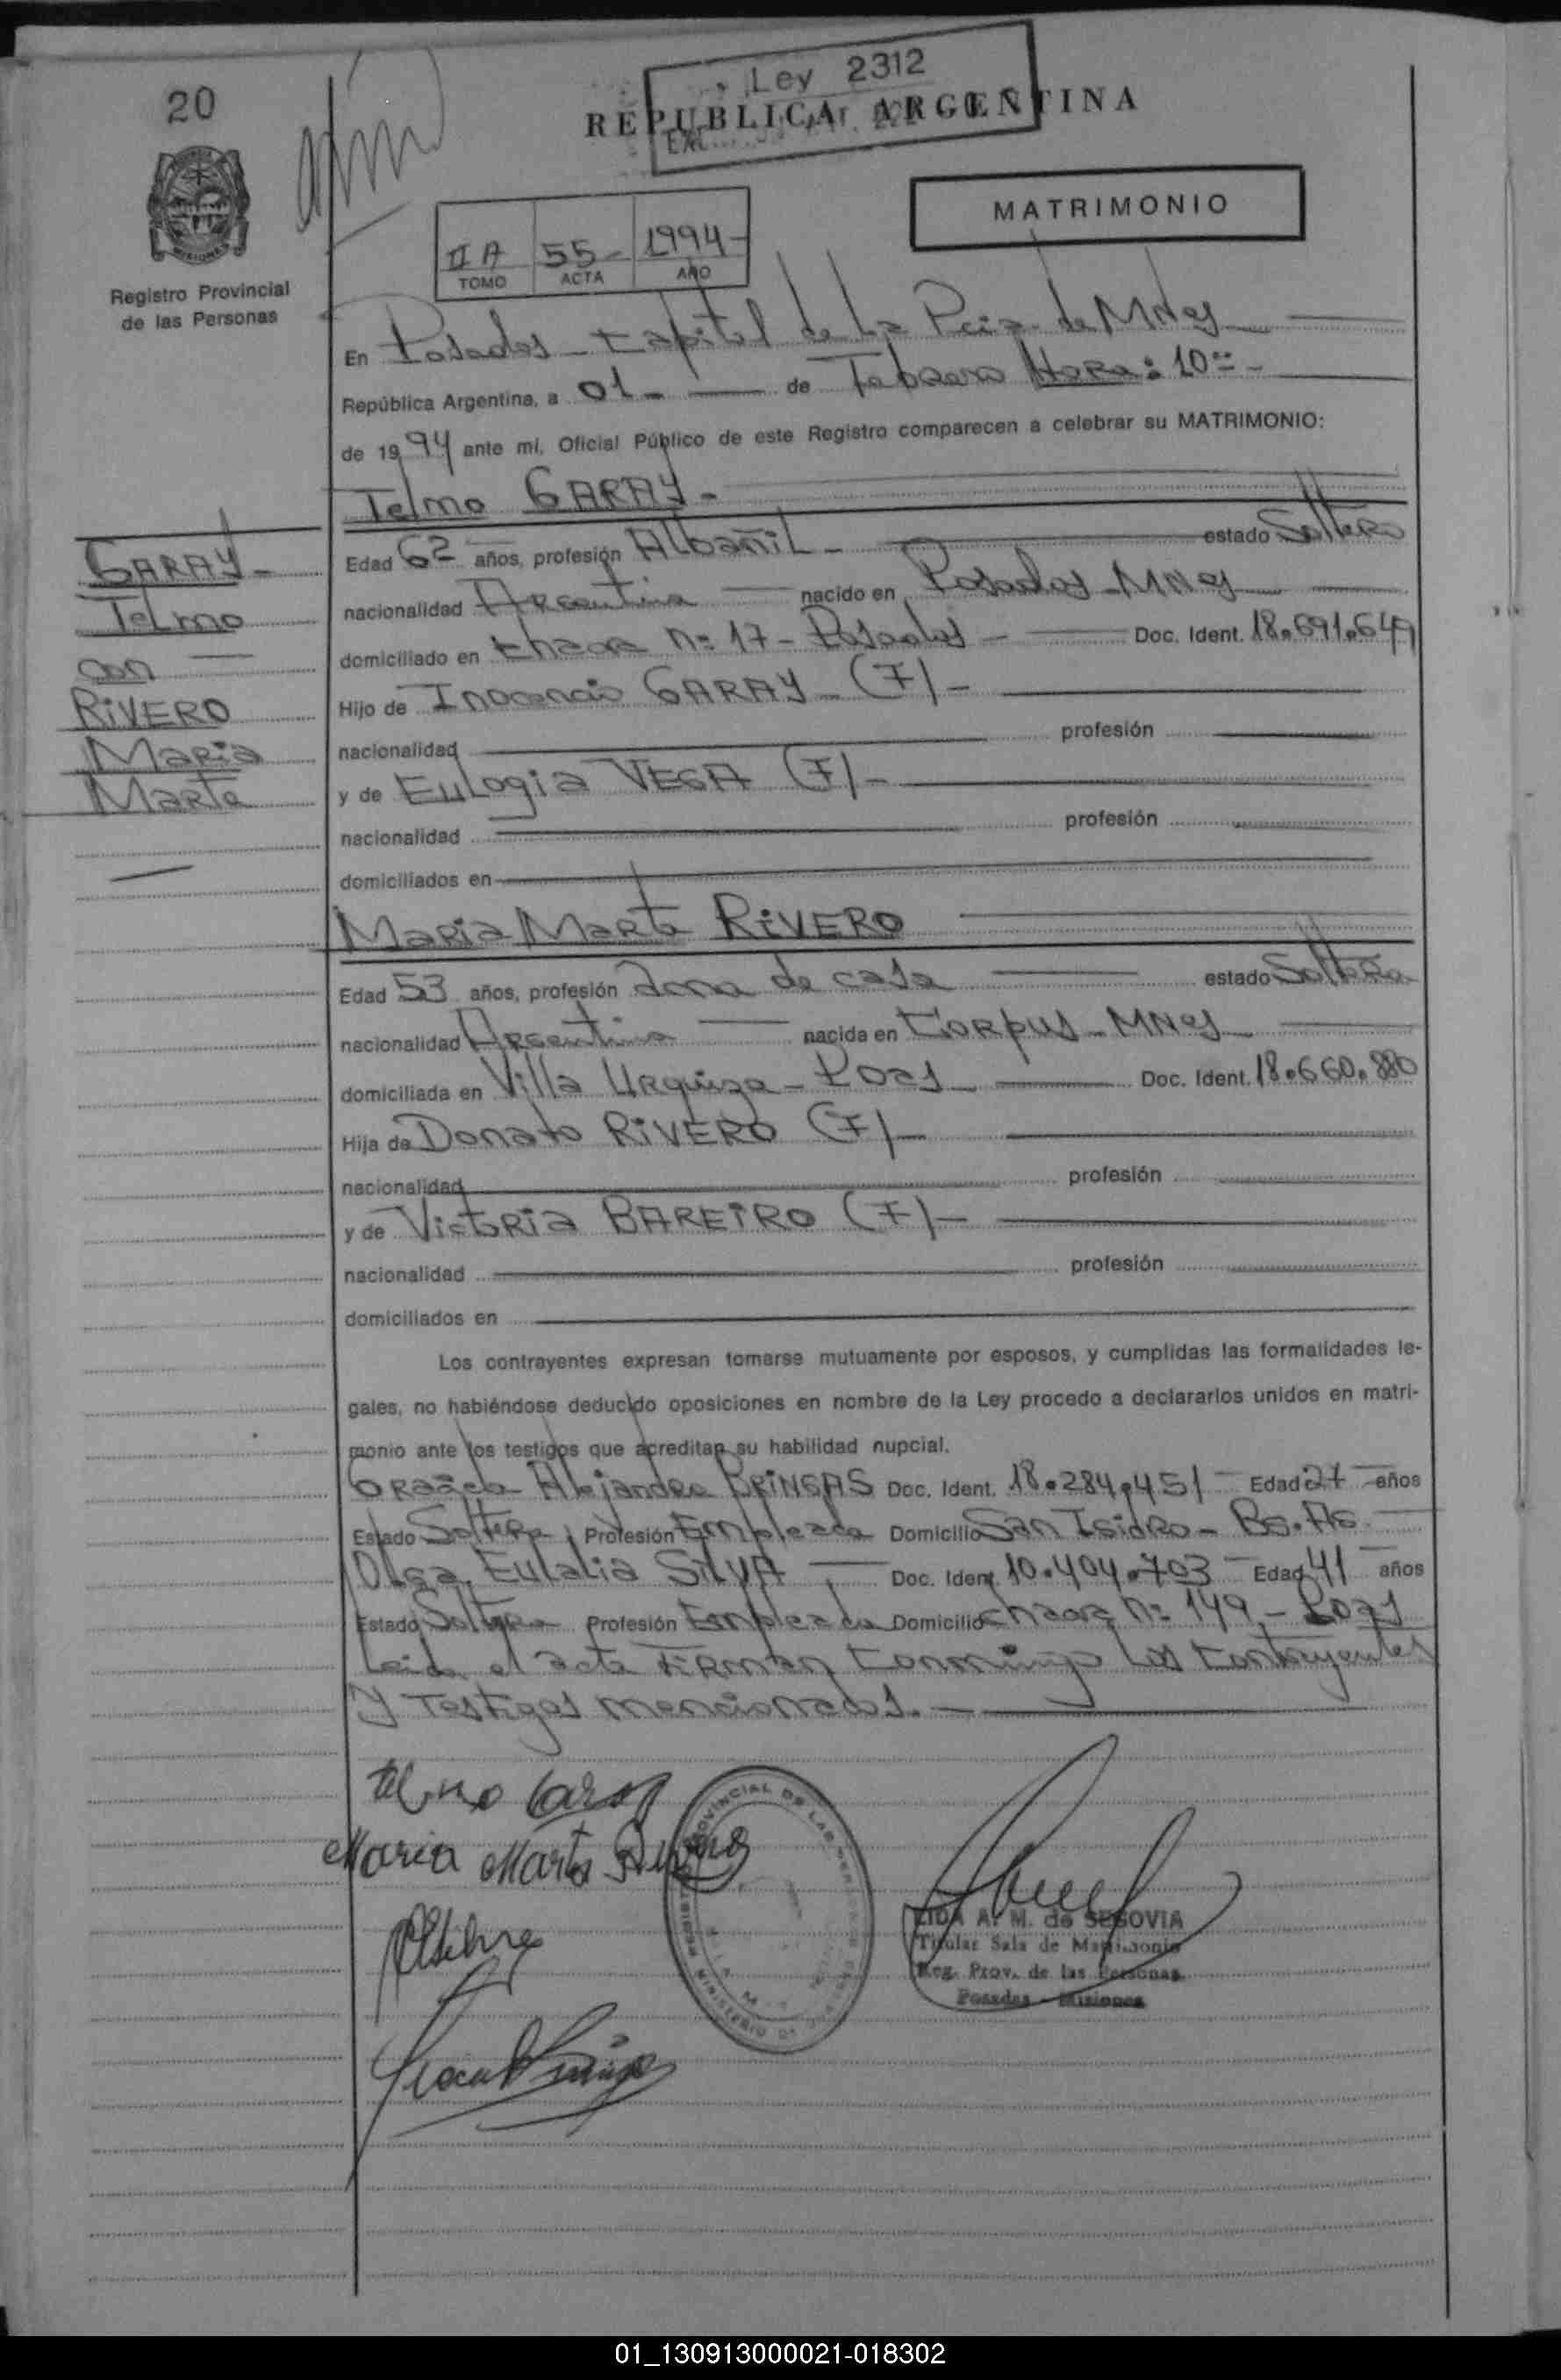 20
Ley 2312
REPUBLICA ARGENTINA
MATRIMONIO
II A 55- 1994-
TOMO ACTA AÑO
MISIONES
Registro Provincial
de las Personas
En Posadas - Capital de La Pcia. de MNes
República Argentina, a 01- de Febrero Hora: 10=-
de 1994 ante mi, Oficial Público de este Registro comparecen a celebrar su MATRIMONIO:
Telmo GARAY-
Edad 62 años, profesión Albañil- estado Soltero
nacionalidad Argentina nacido en Posadas-MNes
domiciliado en Chacra Nº 17- Posadas- Doc. Ident. 18.691.649
Hijo de Inocencio GARAY-(F)-
nacionalidad profesión
y de Eulogia VEGA (F)-
nacionalidad profesión
domiciliados en
GARAY-
Telmo
con
RIVERO
Maria
Marta
Maria Marta RIVERO
Edad 53 años, profesión Ama de casa estado Soltera
nacionalidad Argentina nacida en Corpus-MNes
domiciliada en Villa Urquiza-Pdas- Doc. Ident. 18.660.880
Hija de Donato RIVERO (F)-
nacionalidad profesión
y de Victoria BAREIRO (F)-
nacionalidad profesión
domiciliados en
Los contrayentes expresan tomarse mutuamente por esposos, y cumplidas las formalidades le-
gales, no habiéndose deducido oposiciones en nombre de la Ley procedo a declararlos unidos en matri-
monio ante los testigos que acreditan su habilidad nupcial.
Alejandra BRINGAS Doc. Ident. 18.284.451- Edad 27 años
Estado Soltera Profesión Empleada Domicilio San Isidro-Bs.As.
Olga Eulalia SILVA Doc. Ident. 10.404.703 Edad 41 años
Estado Soltera Profesión Empleada Domicilio Chacra Nº 149-Pdas
Leida el acta Firman Conmigo Los Contrayentes
Y Testigos mencionados.-
Telmo Garay
Maria Marta Rivero
LIDA A. M. de SEGOVIA
Titular Sala de Matrimonio
Reg. Prov. de las Personas
Posadas - Misiones
01_130913000021-018302